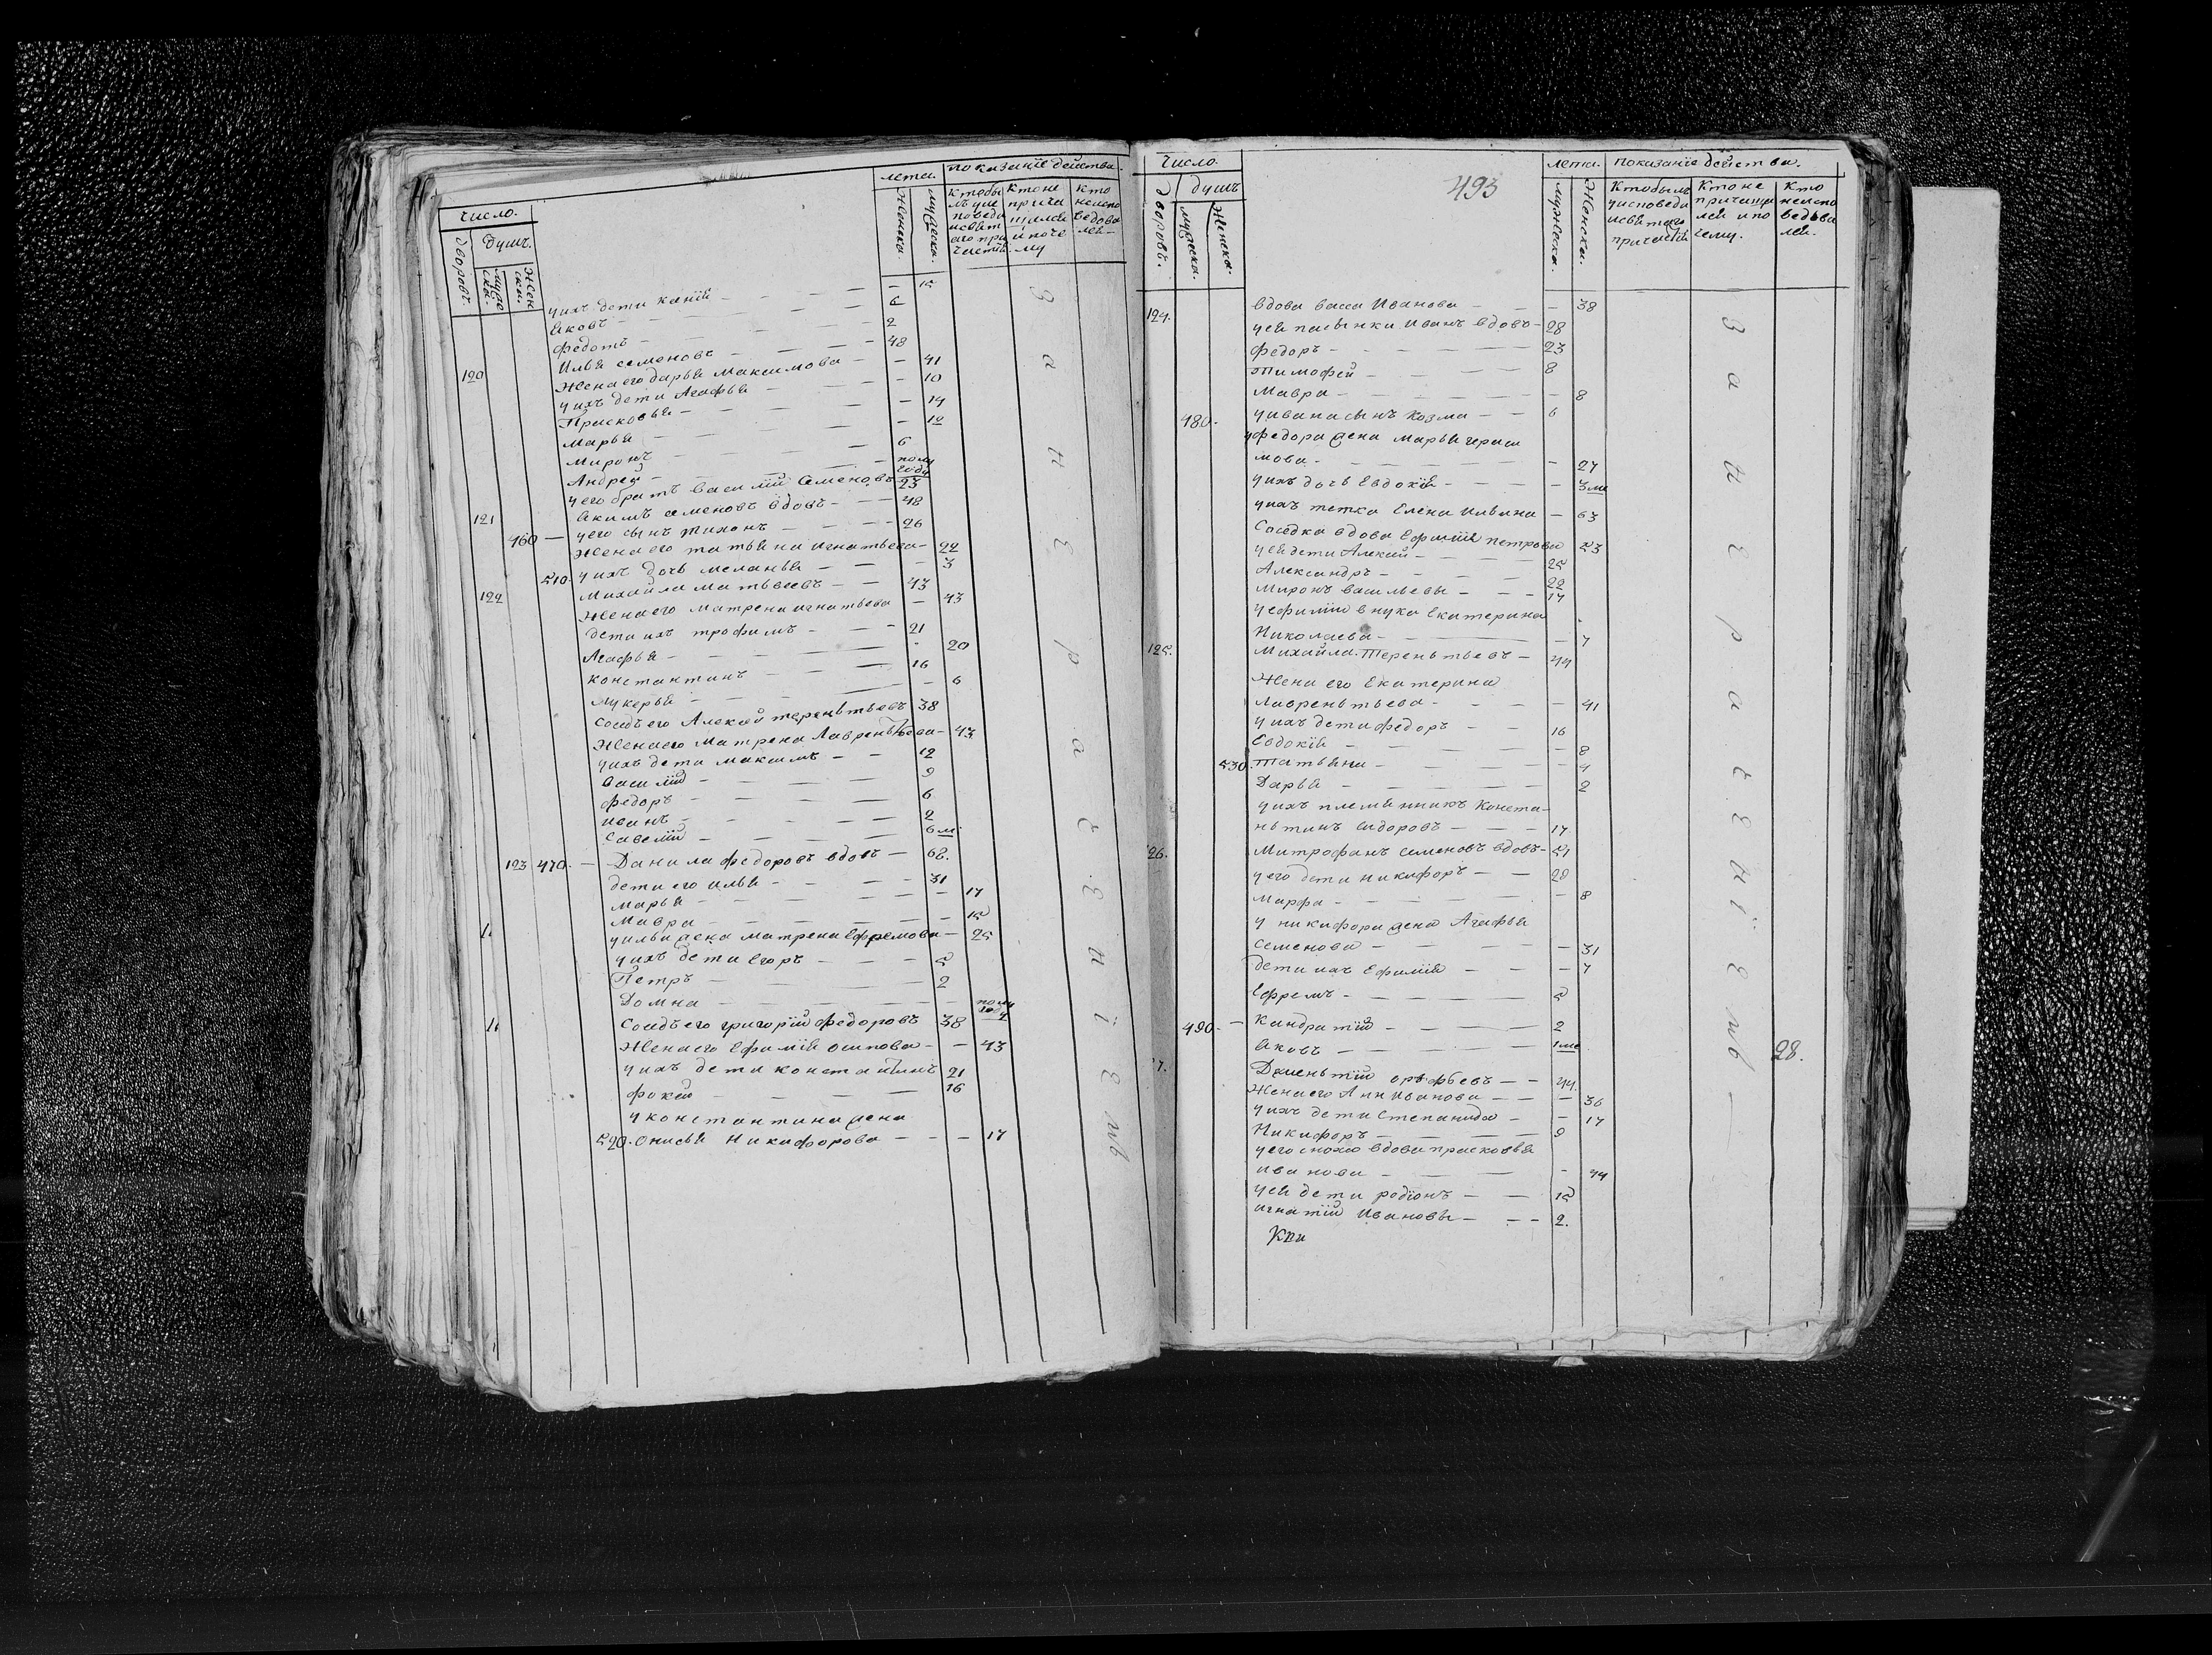 число.
душъ.
летa.
показанїе действа.
дворовъ.
мужеска.
женска.
Женска.
мужеска.
Кто былъ у исповеди и святаго причастїя
Кто не причащался и почему
Кто неисповедовался
у ихъ дети — — 15
Яковъ — — 6
федотъ — — 2
120 Илья семеновъ — — 48
Жена его дарья Максимова — — 41
у ихъ дети Агафья — — 10
Прасковья — — 14
Марья — — 12
Миронъ — — 6
Андрей — — полу году
у его братъ василїй Семеновъ 23
121 Якимъ семеновъ вдовъ — — 48
460 — у его сынъ тихонъ — — 26
Жена его татьяна игнатьева — 22
510. у ихъ дочь меланья — — 3
122 Михайла матвеевъ — — 43
Жена его матрена игнатьева — 43
дети ихъ трофимъ — — 21
Агафья — — 20
константинъ — — 16
лукерья — — 6
соседъ его Алексей терентьевъ 38
Жена его Матрена Лаврентьева — 43
у ихъ дети максимъ — — 12
василїй — — 9
федоръ — — 6
иванъ — — 2
Савелїй — — 6 м:
123 470. — Данила федоровъ вдовъ — 62.
дети его илья — — 31
марья — — 17
Мавра — — 15
у ильи жена матрена Ефремова — 25
у ихъ дети Егоръ — — 5
Петръ — — 2
Домна — — полу году
Соседъ его григорїй федоровъ 38
Жена его Ефимїя осипова — — 43
у ихъ дети константинъ 21
фокей — — 16
у константина жена
520. онисья Никифорова — — 17
за нерачениемъ
493
число.
душъ
летa.
показанїе действа.
дворовъ.
мужеска.
Женска.
мужеска.
Женска.
Кто былъ у исповеди и святаго причастїя
Кто не причащался и по чему.
Кто неисповедовался.
124. вдова васса Иванова — — 38
у ея пасынки Иванъ вдовъ — 28
федоръ — — 23
тимофей — — 8
Мавра — — 8
480. у ивана сынъ козма — — 6
у федора жена марья гераси
мова — — 27
у ихъ дочь Евдокїя — — 3 ме
у ихъ тетка Елена ильина — 63
Соседка вдова Ефимїя петрова 53
у ея дети Алексей — — 25
Александръ — — 22
миронъ васильевы — — 17
у ефимїи внука Екатерина
Николаева — — 7
125. Михайла Терентьевъ — 44
Жена его Екатерина
лаврентьева — — 41
у ихъ дети федоръ — — 16
Евдокїя — — 8
530. татьяна — — 4
Дарья — — 2
у ихъ племянникъ Конста-
нтинъ сидоровъ — — 17
126. Митрофанъ семеновъ вдовъ — 51
у его дети никифоръ — — 28
марфа — — 8
у никифора жена Агафья
семенова — — 31
дети ихъ Ефимїя — — 7
Ефремъ — — 5
490. — Кандратїй — — 2
Яковъ — — 1 ме
7. орефьевъ — — 44.
Жена его Анн Иванова — — 36
у ихъ дети Степанида — — 17
Никифоръ — — 9
у его сноха вдова прасковья
иванова — — 44
у ея дети родїонъ — — 15
игнатїй Ивановы — — 2.
за нерачениемъ
28.